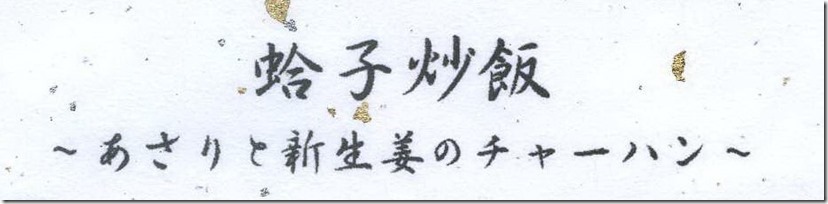 蛤子炒飯
~あさりと新生姜のチャーハン~